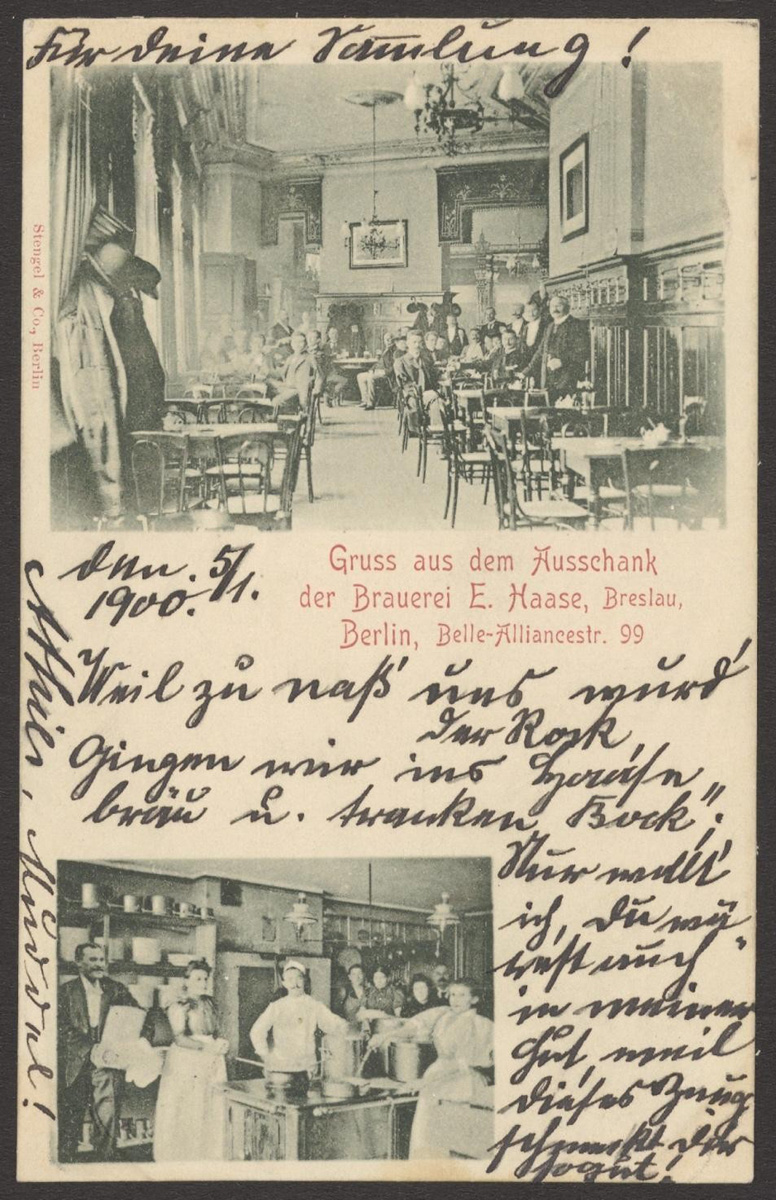 Für deine Sammlung!
Stengel & Co., Berlin
den. 5/1.
1900.
Gruss aus dem Ausschank
der Brauerei E. Haase, Breslau,
Berlin, Belle-Alliancestr. 99
Weil zu naß uns wurd'
der Rock,
Gingen wir ins Haase
bräu u. tranken „Bock“;
Nur wollt'
ich, Du wä-
rest auch
in meiner
Hut, weil
dieses Zeug
schmeckt dir
so gut!